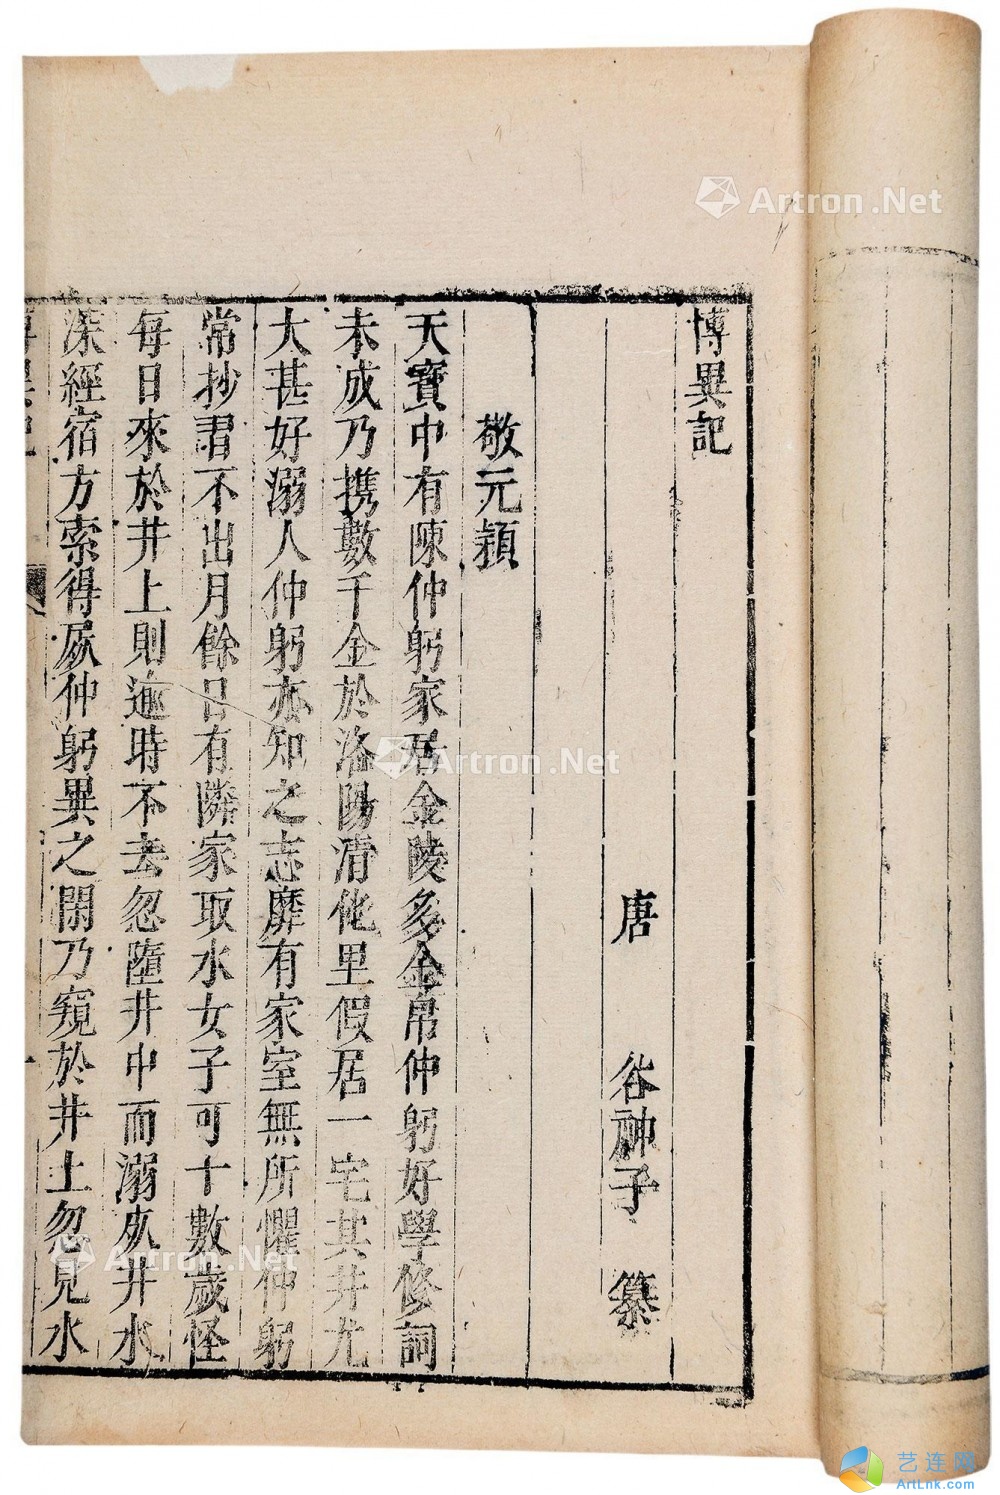 博異記
唐 谷神子 纂
敬元頴
天寳中有陳仲躬家居金陵多金帛仲躬好學修詞
未成乃携數千金於洛陽清化里假居一宅其井尤
大甚好溺人仲躬亦知之志靡有家室無所懼仲躬
常抄習不出月餘日有隣家取水女子可十數歲怪
每日來於井上則逾時不去忽墮井中而溺死井水
深經宿方索得屍仲躬異之閑乃窺於井上忽見水
博異記
一
Artron.Net
Artron.Net
Artron.Net
艺连网
ArtLnk.com